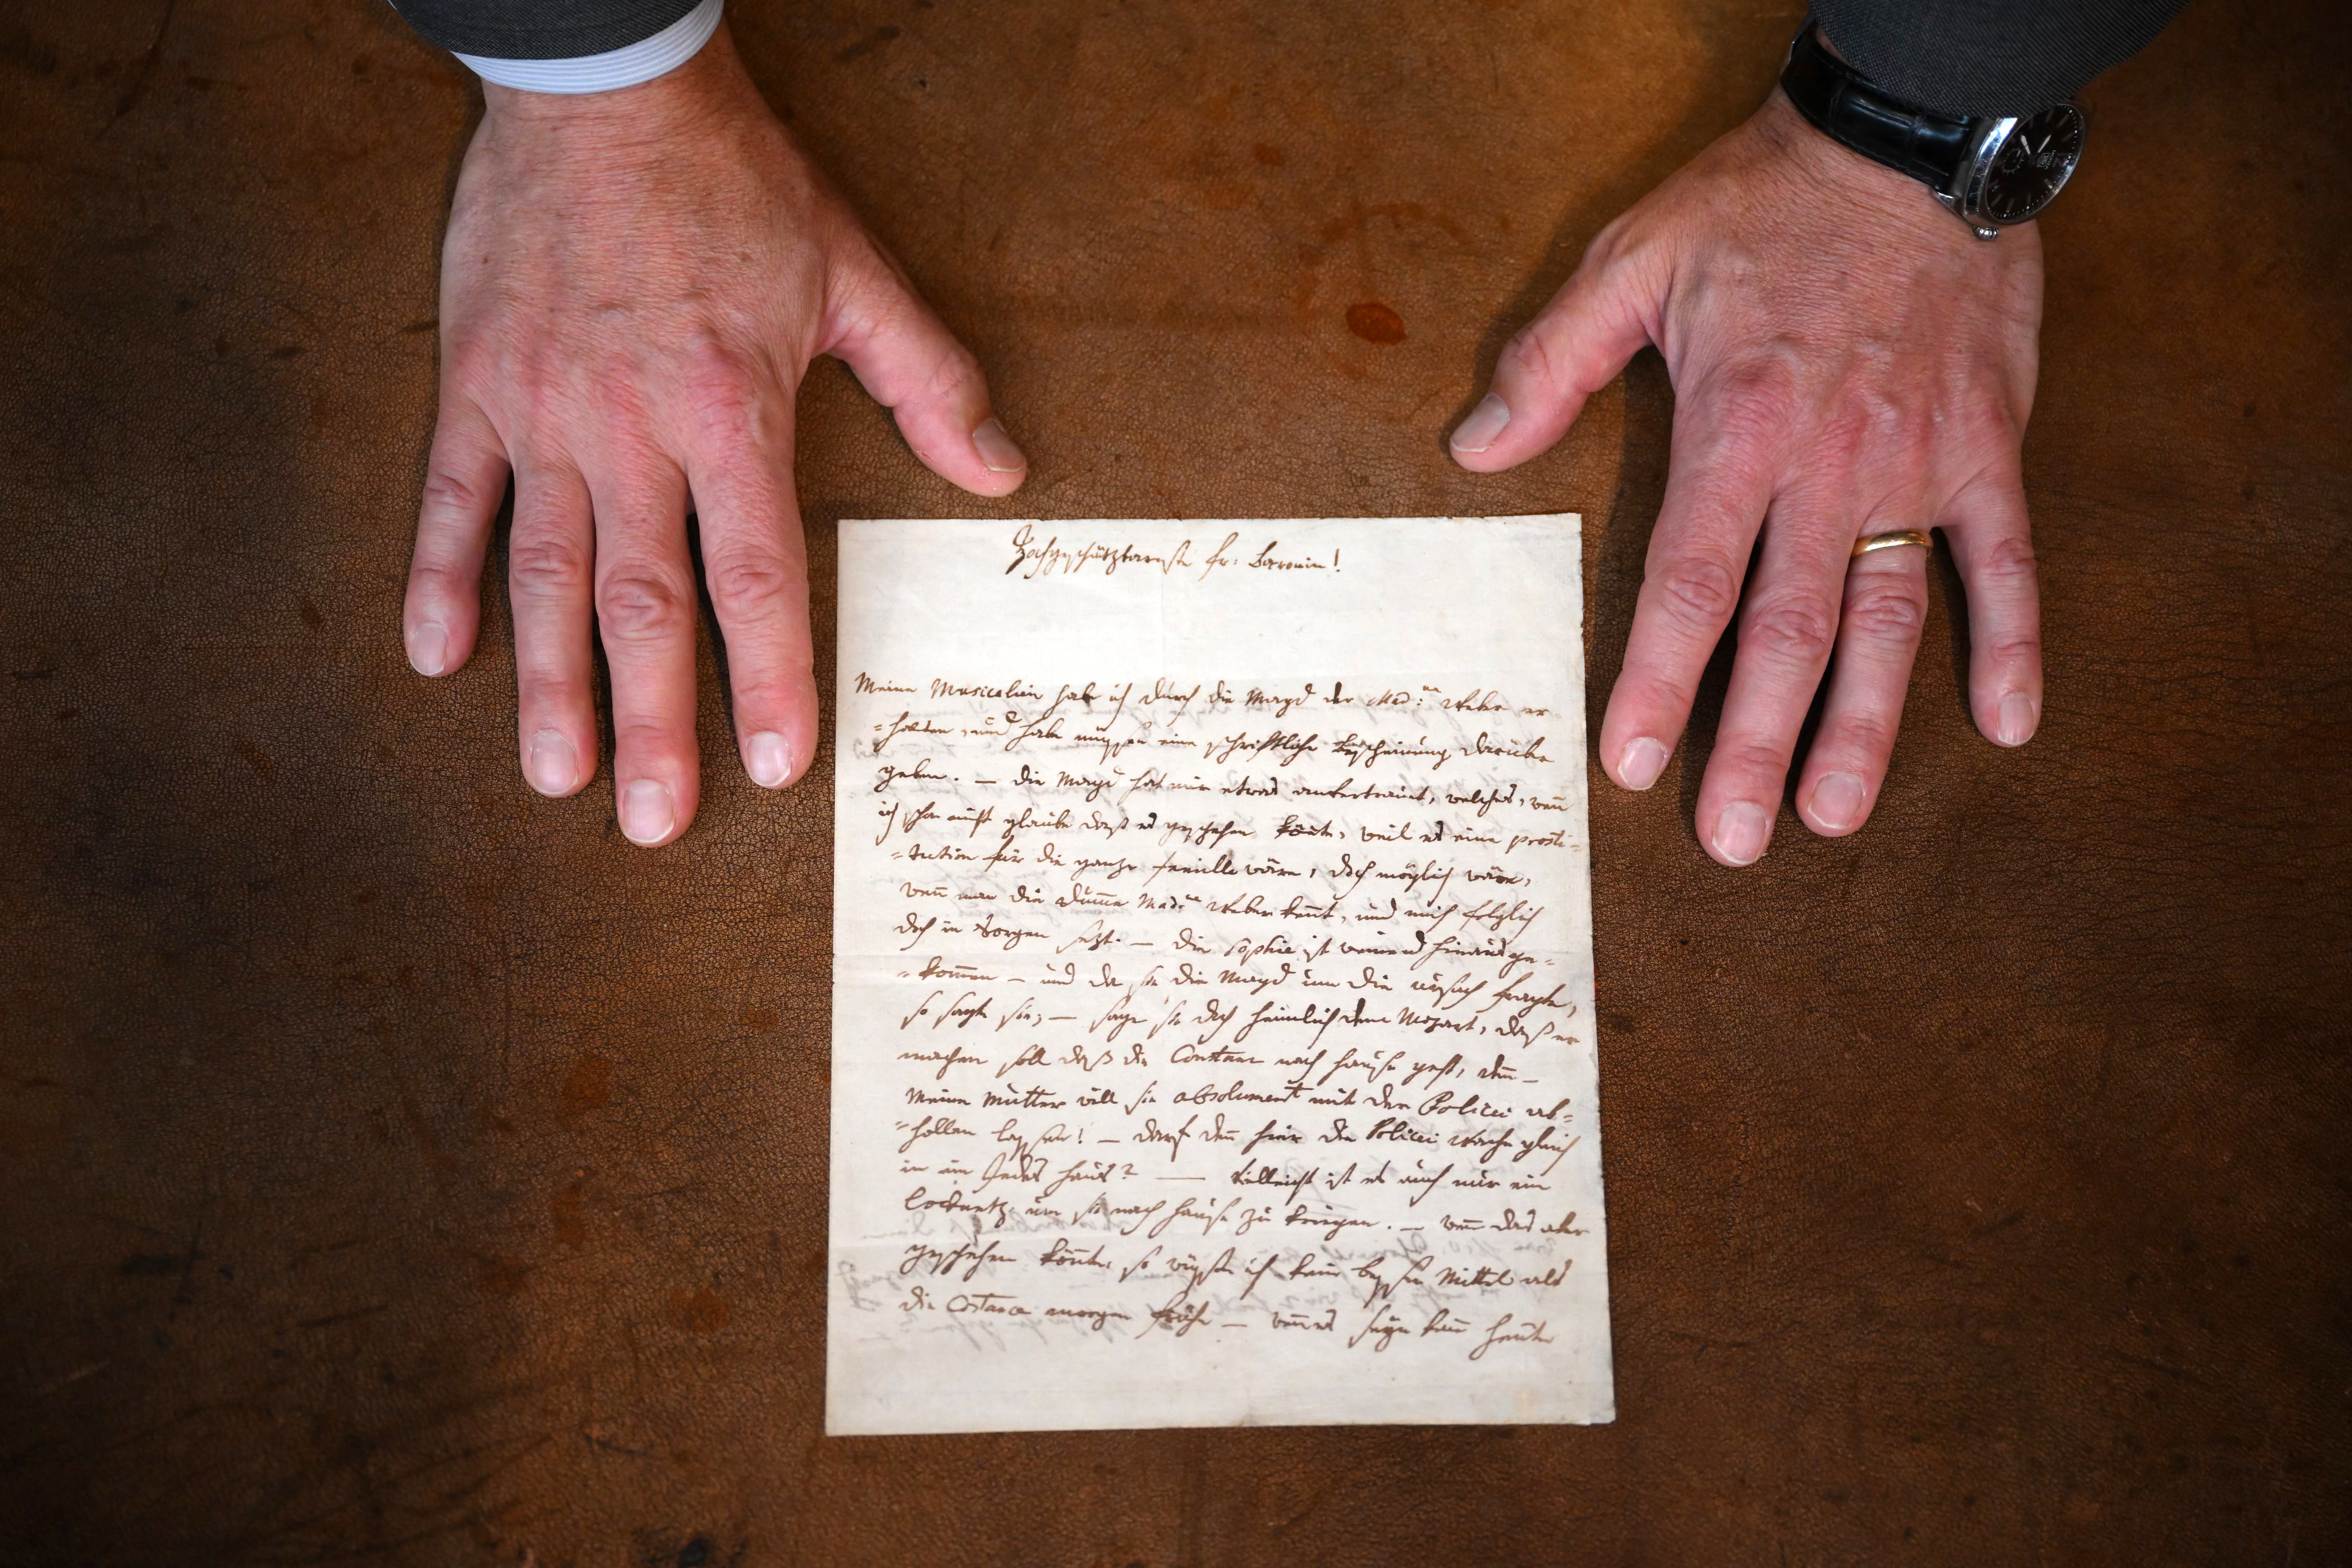 Hochgeschätzbareste fr: Baronin!
Meine Musicalien habe ich durch die Magd der Mad:me Weber er=
=halten, und habe müssen eine schriftliche bescheinung darüber
geben. — die Magd hat mir etwas anvertrauet, welches, wenn
ich schon nicht glaube daß es geschehen könnte, weil es eine prosti=
=tution für die ganze familie wäre, doch möglich wäre,
wenn man die dumme Mad:me Weber kennt, und mich folglich
doch in Sorgen sezt. — die Sophie ist weinend hinausge=
=kommen — und da sie die Magd um die ursach fragte,
so sagte sie; — sage sie doch heimlich dem Mozart, daß er
machen soll daß die Constanz nach hause geht, denn —
Meine Mutter will sie absolument mit der Policei ab=
=hollen lassen! — darf denn hier die Policei Wache gleich
in ein Jedes haus? — Vielleicht ist es auch nur ein
locknetz um sie nach hause zu kriegen. — wenn das aber
geschehen könnte, so wüsste ich kein bessers Mittel als
die Costance morgen frühe — wenn es seyn kann heute